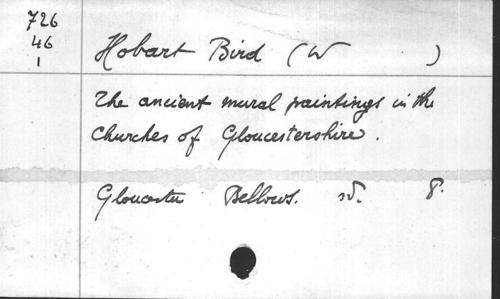 726
46
1
Hobart Bird (W )
The ancient mural paintings in the
Churches of Gloucestershire.
Gloucester Bellows. sd. 8.